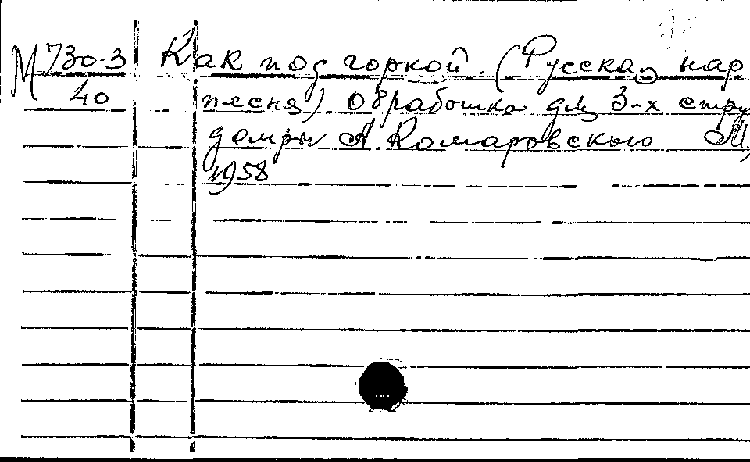 М 730-3 Как под горкой. (Русская нар
40 песня) Обработка для 3-х стру
домры А. Комаровского М,
1958